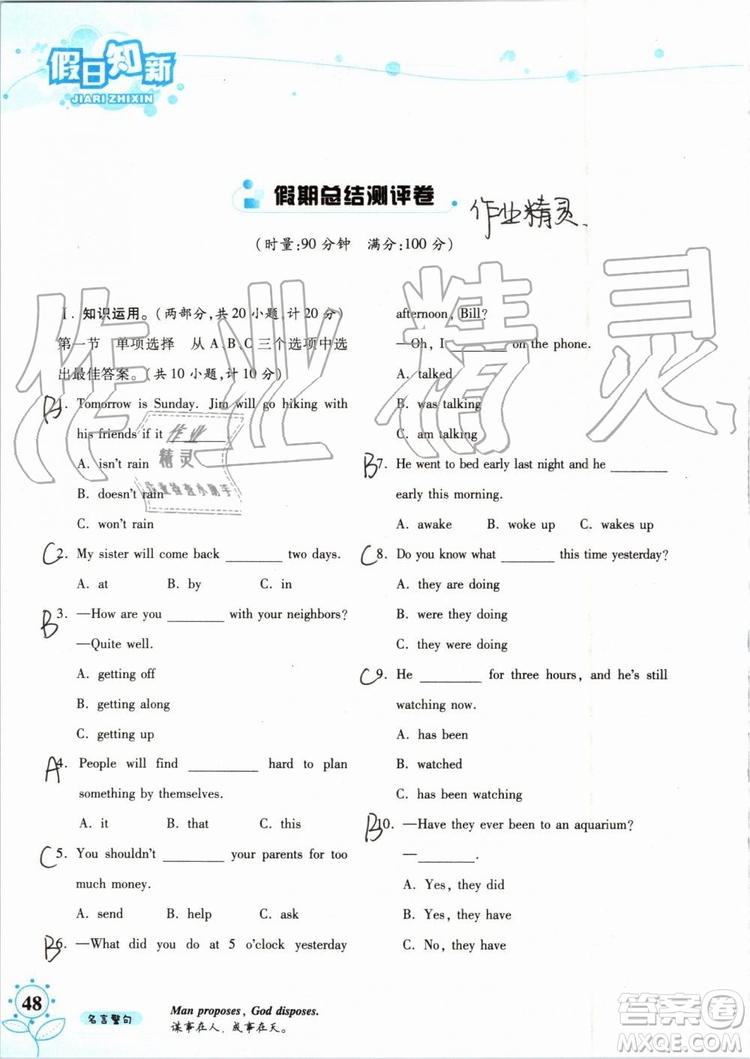 假日知新
JIARI ZHIXIN
假期总结测评卷
作业精灵
(时量:90 分钟 满分:100 分)
Ⅰ. 知识运用。(两部分,共 20 小题,计 20 分)
第一节 单项选择 从 A B C 三个选项中选
出最佳答案。(共 10 小题,计 10 分)
B 1. Tomorrow is Sunday. Jim will go hiking with
his friends if it ________
A. isn't rain
B. doesn't rain
C. won't rain
C 2. My sister will come back ________ two days.
A. at B. by C. in
B 3. —How are you ________ with your neighbors?
—Quite well.
A. getting off
B. getting along
C. getting up
A 4. People will find ________ hard to plan
something by themselves.
A. it B. that C. this
C 5. You shouldn't ________ your parents for too
much money.
A. send B. help C. ask
B 6. —What did you do at 5 o'clock yesterday
afternoon, Bill?
—Oh, I ________ on the phone.
A. talked
B. was talking
C. am talking
B 7. He went to bed early last night and he ________
early this morning.
A. awake B. woke up C. wakes up
C 8. Do you know what ________ this time yesterday?
A. they are doing
B. are they doing
C. they were doing
C 9. He ________ for three hours, and he's still
watching now.
A. has been
B. watched
C. has been watching
B 10. —Have they ever been to an aquarium?
—________.
A. Yes, they did
B. Yes, they have
C. No, they have
48
名言警句
Man proposes, God disposes.
谋事在人,成事在天。
作业精灵
作业
精灵
作业检查小助手
答案圈
MXQE.COM